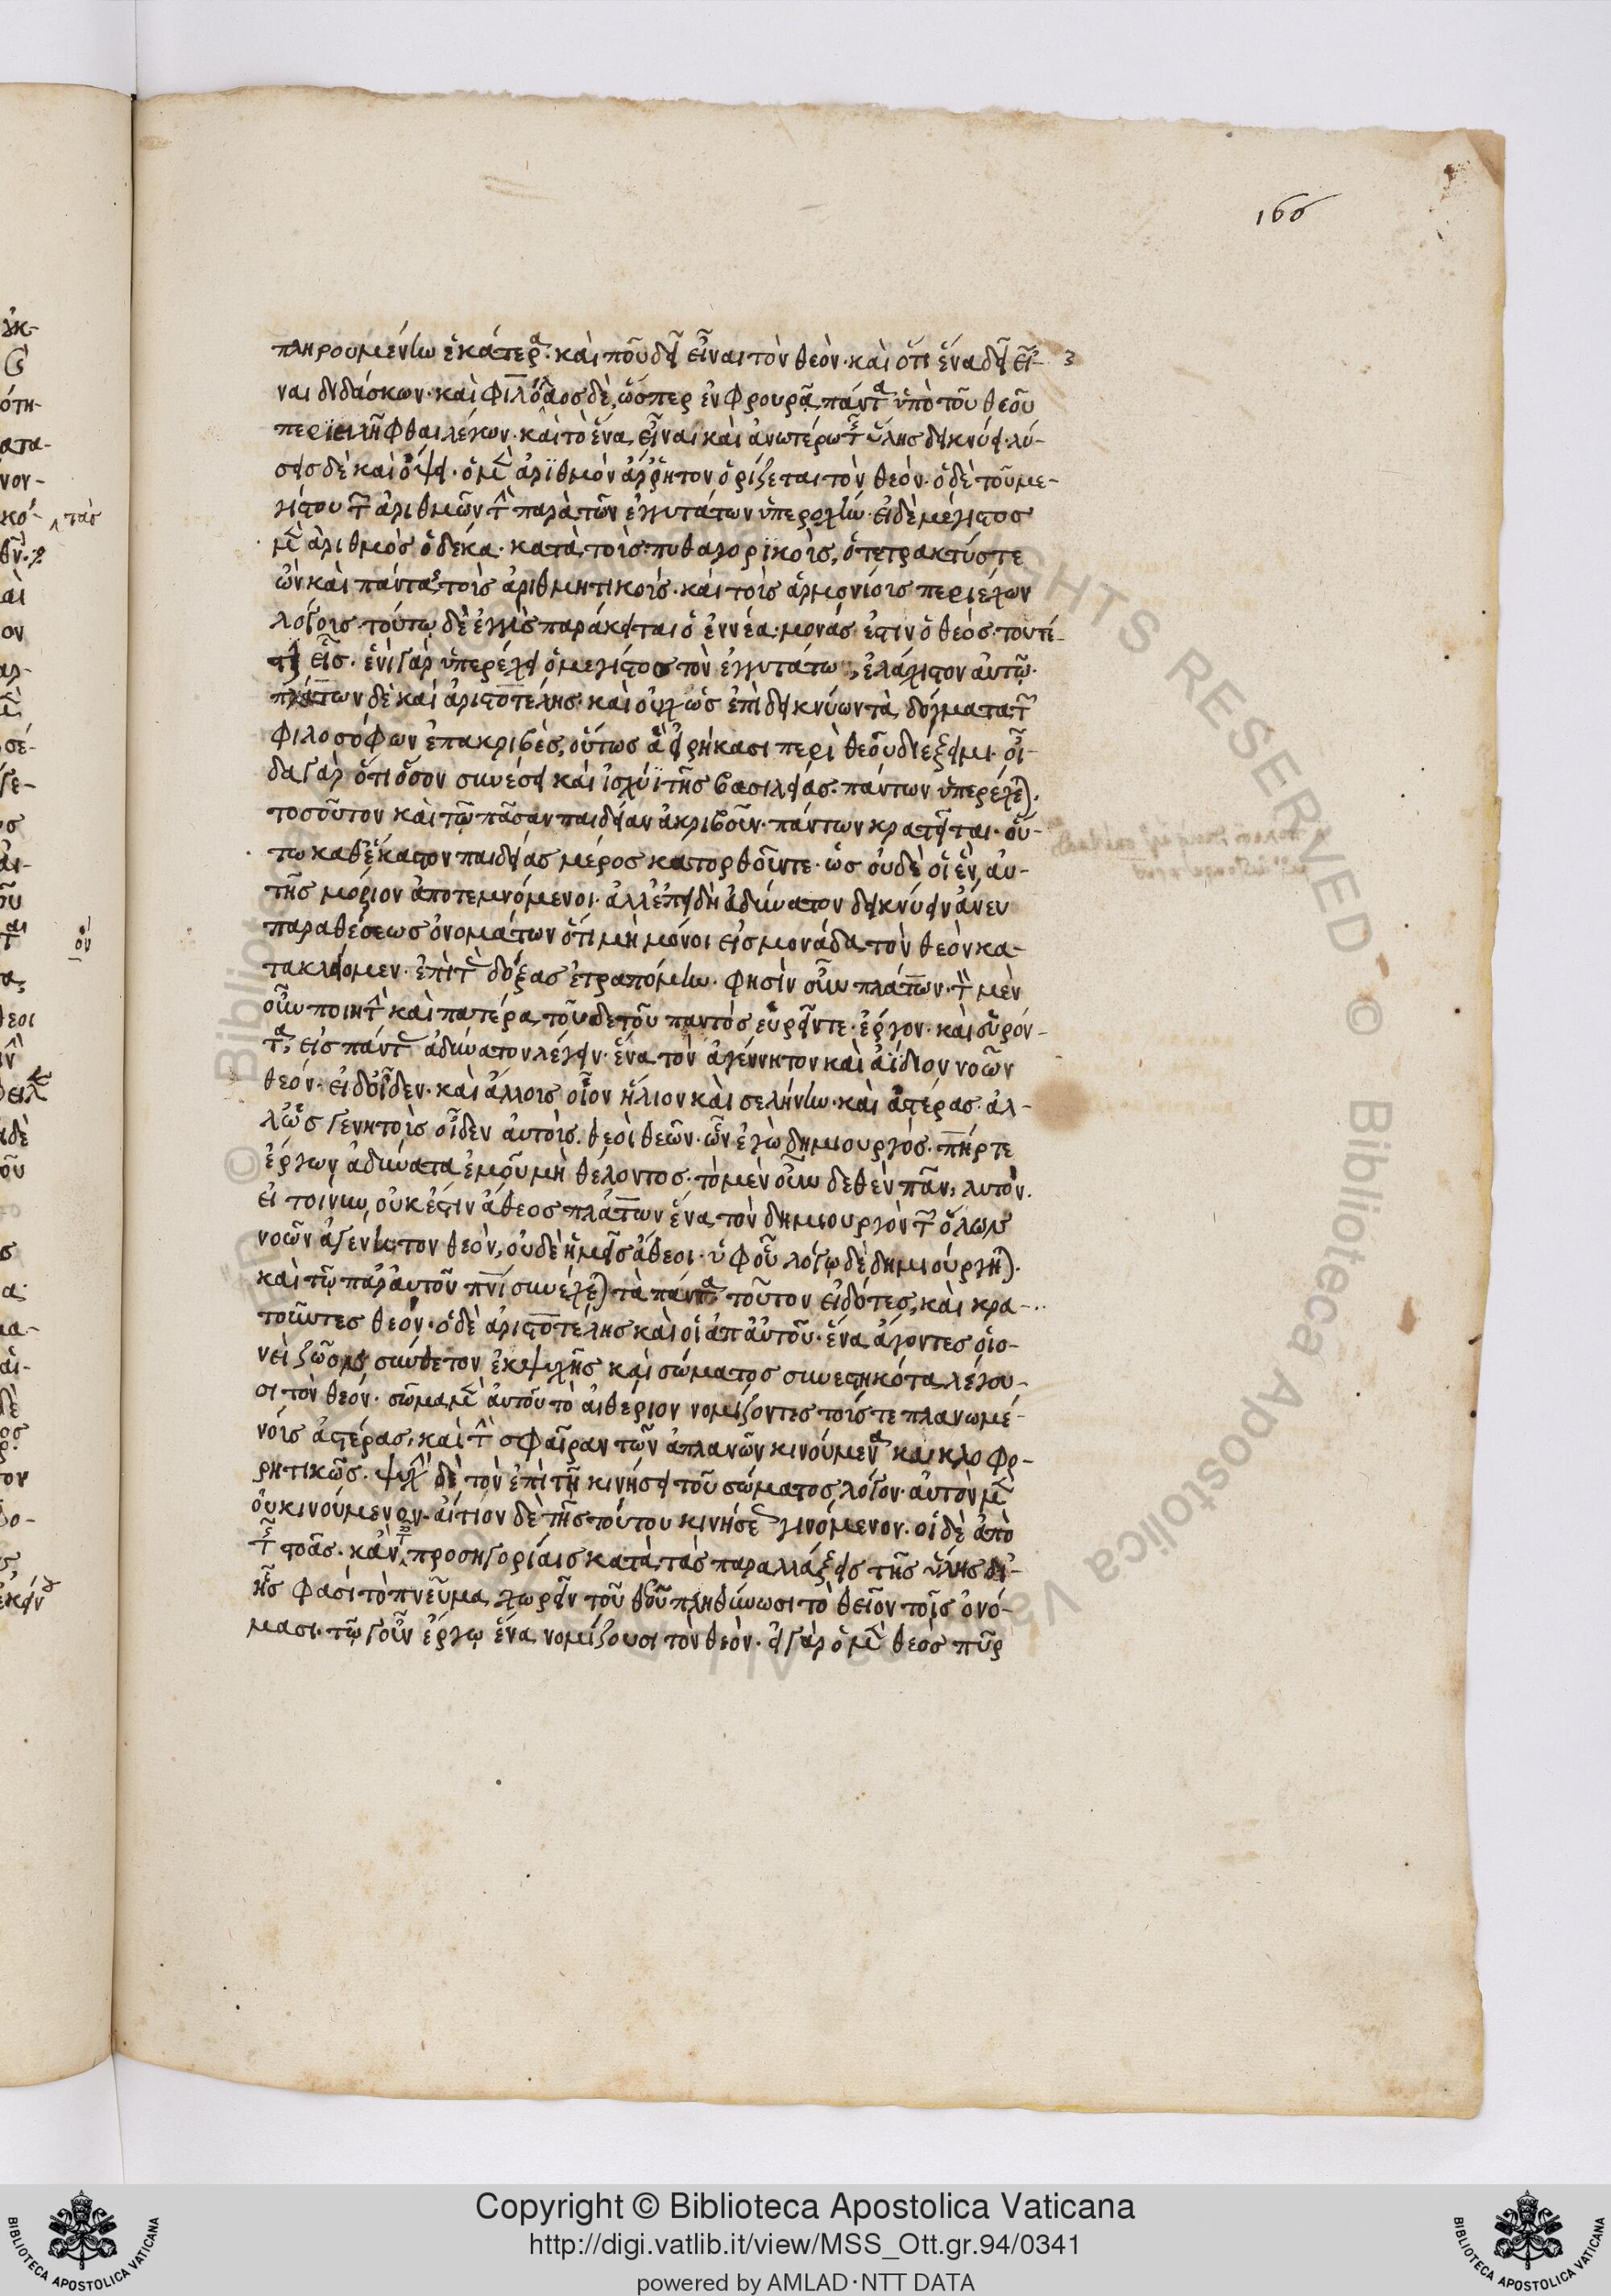 166
πληρουμένην ἑκάτερα· καὶ ποῦ δεῖ εἶναι τὸν θεόν· καὶ ὅτι ἕνα δεῖ εἶ-
ναι διδάσκων· καὶ Φιλόλαος δὲ, ὥσπερ ἐν φρουρᾷ πάντα ὑπὸ τοῦ θεοῦ
περιειλῆφθαι λέγων· καὶ τὸ ἕνα εἶναι καὶ ἀνωτέρω τῆς ὕλης δεικνύει· λύ-
σις δὲ καὶ ὄψει· ὁ μὲν ἀριθμὸν ἄρρητον ὁρίζεται τὸν θεόν· ὁ δὲ τοῦ με-
γίστου τῶν ἀριθμῶν τὴν παρὰ τῶν ἐγγυτάτων ὑπεροχήν· εἰ δὲ μέγιστος
μὲν ἀριθμὸς ὁ δέκα· κατὰ τοὺς πυθαγορικοὺς, ὁ τετρακτύς τε
ὢν καὶ πάντας τοὺς ἀριθμητικοὺς· καὶ τοὺς ἁρμονίους περιέχων
λόγους· τούτῳ δὲ ἐγγὺς παράκειται ὁ ἐννέα· μονάς ἐστιν ὁ θεὸς· τουτέ-
στιν εἷς· ἑνὶ γὰρ ὑπερέχει ὁ μέγιστος τὸν ἐγγυτάτω, ἐλάχιστον αὐτῷ·
πλάτων δὲ καὶ ἀριστοτέλης· καὶ οὐχ ὡς ἐπιδεικνύων τὰ δόγματα τῶν
φιλοσόφων ἐπακριβὲς, οὕτως ἃ εἰρήκασι περὶ θεοῦ διέξειμι· οἶ-
δα γὰρ ὅτι ὅσον συνέσει καὶ ἰσχύϊ τῆς βασιλείας· πάντων ὑπερέχετε·
τοσοῦτον καὶ τῷ πᾶσαν παιδείαν ἀκριβοῦν· πάντων κρατεῖται· οὕ-
τω καθ' ἕκαστον παιδείας μέρος κατορθοῦντε· ὡς οὐδὲ οἱ ἓν αὐ-
τῆς μόριον ἀποτεμνόμενοι· ἀλλ' ἐπειδὴ ἀδύνατον δεικνύειν ἄνευ
παραθέσεως ὀνομάτων ὅτι μὴ μόνοι εἰς μονάδα τὸν θεὸν κα-
τακλείομεν· ἐπὶ τὰς δόξας ἐτραπόμην· φησὶν οὖν πλάτων· τὸν μὲν
οὖν ποιητὴν καὶ πατέρα τοῦδε τοῦ παντὸς εὑρεῖν τε ἔργον· καὶ εὑρόν-
τα, εἰς πάντας ἀδύνατον λέγειν· ἕνα τὸν ἀγέννητον καὶ ἀΐδιον νοῶν
θεόν· εἰ δ' οἶδεν· καὶ ἄλλους οἷον ἥλιον καὶ σελήνην· καὶ ἀστέρας· ἀλ-
λ' ὡς γενητοὺς οἶδεν αὐτοὺς· θεοὶ θεῶν· ὧν ἐγὼ δημιουργὸς· πατήρ τε
ἔργων ἀδύνατα ἐμοῦ μὴ θέλοντος· τὸ μὲν οὖν δεθὲν πᾶν, λυτόν·
εἰ τοίνυν οὐκ ἔστιν ἄθεος πλάτων ἕνα τὸν δημιουργὸν τῶν ὅλων
νοῶν ἀγένητον θεὸν, οὐδὲ ἡμεῖς ἄθεοι· ὑφ' οὗ λόγῳ δὲ δημιούργηται·
καὶ τῷ παρ' αὐτοῦ πνεύματι συνέχεται τὰ πάντα τοῦτον εἰδότες, καὶ κρα-
τοῦντες θεόν· ὁ δὲ ἀριστοτέλης καὶ οἱ ἀπ' αὐτοῦ· ἕνα ἄγοντες οἱο-
νεὶ ζῶον σύνθετον ἐκ ψυχῆς καὶ σώματος συνεστηκότα λέγου-
σι τὸν θεόν· σῶμα μὲν αὐτοῦ τὸ αἰθέριον νομίζοντες τούς τε πλανωμέ-
νους ἀστέρας, καὶ τὴν σφαῖραν τῶν ἀπλανῶν κινούμενα κυκλοφο-
ρητικῶς· ψυχὴν δὲ τὸν ἐπὶ τῇ κινήσει τοῦ σώματος λόγον· αὐτὸν μὲν
οὐ κινούμενον· αἴτιον δὲ τῆς τούτου κινήσεως γινόμενον· οἱ δὲ ἀπὸ
τῆς στοᾶς· κἂν ταῖς προσηγορίαις κατὰ τὰς παραλλάξεις τῆς ὕλης δι'
ἧς φασὶ τὸ πνεῦμα χωρεῖν τοῦ θεοῦ πληθύνωσι τὸ θεῖον τοῖς ὀνό-
μασι· τῷ γοῦν ἔργῳ ἕνα νομίζουσι τὸν θεόν· εἰ γὰρ ὁ μὲν θεὸς πῦρ
Copyright © Biblioteca Apostolica Vaticana
http://digi.vatlib.it/view/MSS_Ott.gr.94/0341
powered by AMLAD·NTT DATA